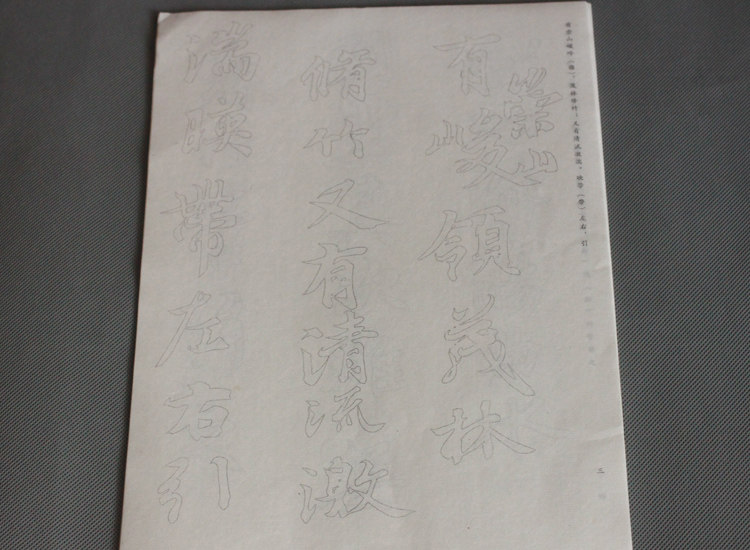 有崇山峻岭（领），茂林修竹；又有清流激湍，映带（帶）左右，引
三
有崇山峻領茂林
脩竹又有清流激
湍暎帶左右引